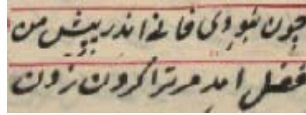 چون نبودی فانی اندر پیش من
فضل امد مر ترا کردن زدن